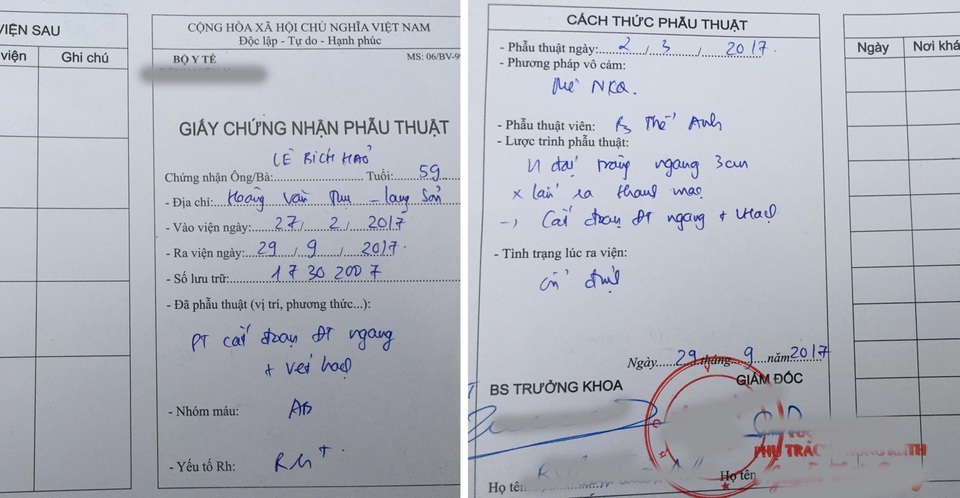 VIỆN SAU
viện
Ghi chú
CỘNG HÒA XÃ HỘI CHỦ NGHĨA VIỆT NAM
Độc lập - Tự do - Hạnh phúc
BỘ Y TẾ
MS: 06/BV-9
GIẤY CHỨNG NHẬN PHẪU THUẬT
LÊ BÍCH HẢO
Chứng nhận Ông/Bà: Tuổi: 59
- Địa chỉ: Hoàng Văn Thụ – Lạng Sơn
- Vào viện ngày: 27 / 2 / 2017
- Ra viện ngày: 29 / 9 / 2017
- Số lưu trữ: 17302007
- Đã phẫu thuật (vị trí, phương thức...):
PT cắt đoạn ĐT ngang
+ vét hạch
- Nhóm máu: AB
- Yếu tố Rh: Rh+
CÁCH THỨC PHẪU THUẬT
- Phẫu thuật ngày: 2 / 3 / 2017
- Phương pháp vô cảm:
Mê NKQ.
- Phẫu thuật viên: Bs Thế Anh
- Lược trình phẫu thuật:
U đại tràng ngang 3cm
x lấn ra thanh mạc
→ Cắt đoạn ĐT ngang + VHạch
- Tình trạng lúc ra viện:
ổn định
Ngày 29 tháng 9 năm 2017
BS TRƯỞNG KHOA
GIÁM ĐỐC
PHỤ TRÁCH
Họ tên
Họ tên
Ngày
Nơi khá